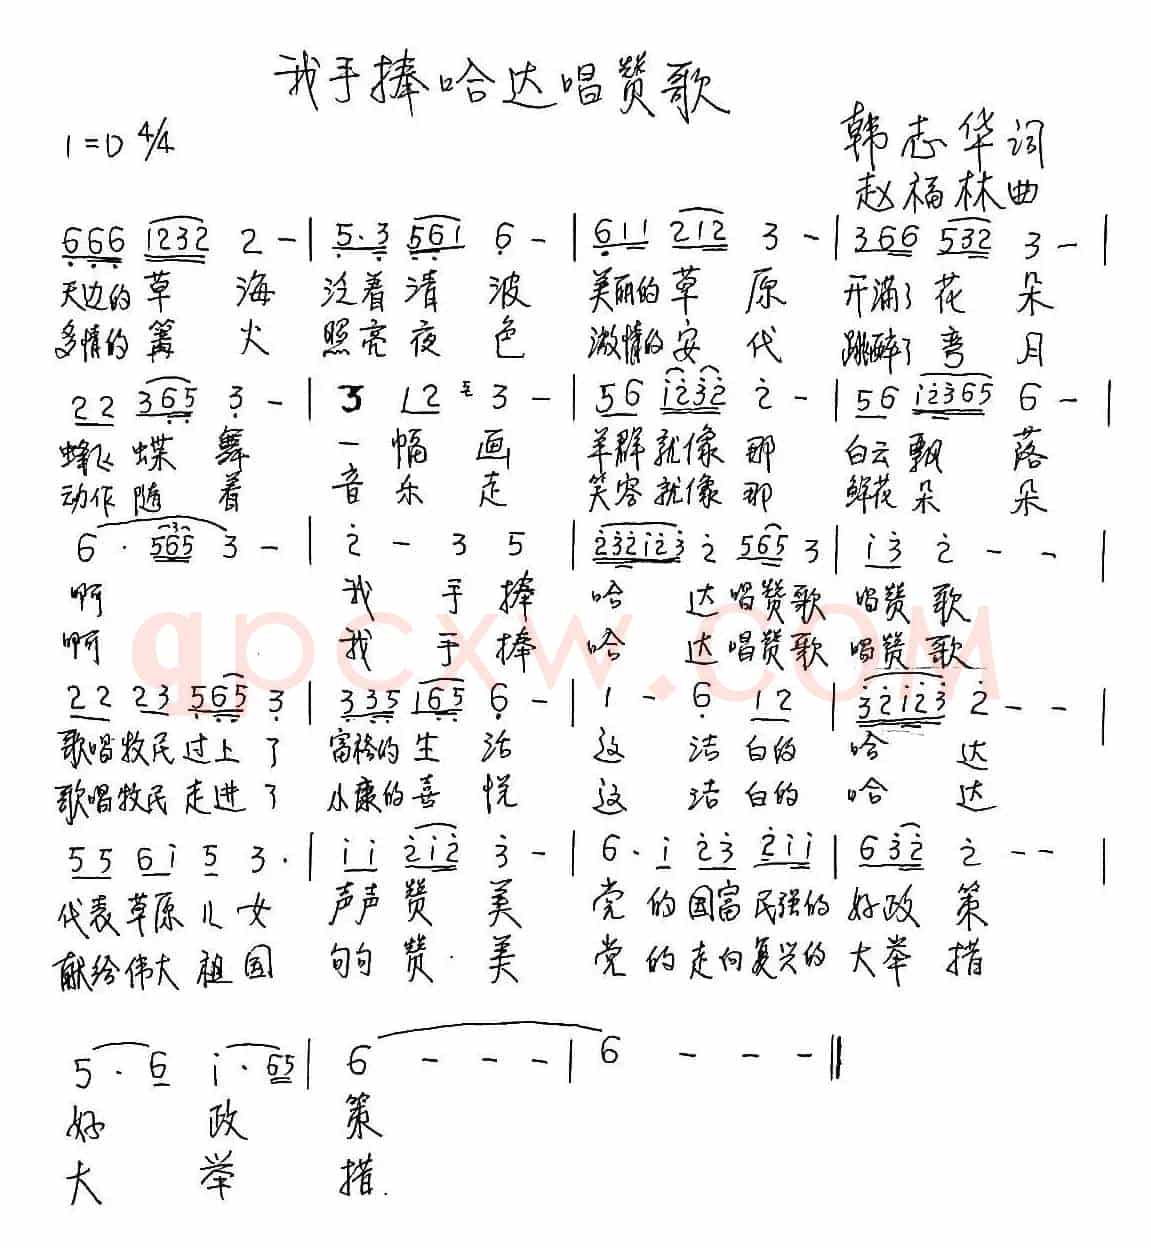 我手捧哈达唱赞歌
1=D 4/4
韩志华词
赵福林曲
666 1232 2 - | 5·3 561 6 - | 611 212 3 - | 366 532 3 - |
天边的草海 泛着清波 美丽的草原 开满了花朵
多情的篝火 照亮夜色 激情的安代 跳醉了弯月
22 365 3 - | 3 12 3 - | 56 i232 2 - | 56 i2365 6 - |
蜂飞蝶舞 一幅画 羊群就像那 白云飘落
动作随着 音乐走 笑容就像那 鲜花朵朵
6 · 565 3 - | 2 - 3 5 | 232i23 2 565 3 | i3 2 - - |
啊 我手捧 哈达唱赞歌 唱赞歌
啊 我手捧 哈达唱赞歌 唱赞歌
qpcxw.com
22 23 565 3 | 335 165 6 - | 1 - 6 12 | 32i23 2 - - |
歌唱牧民过上了 富裕的生活 这洁白的 哈达
歌唱牧民走进了 小康的喜悦 这洁白的 哈达
55 6i 5 3· | ii 2i2 3 - | 6·i 23 2ii | 632 2 - - |
代表草原儿女 声声赞美 党的国富民强的 好政策
献给伟大祖国 句句赞美 党的走向复兴的 大举措
5·6 i·65 | 6 - - - | 6 - - - ‖
好政策
大举措.